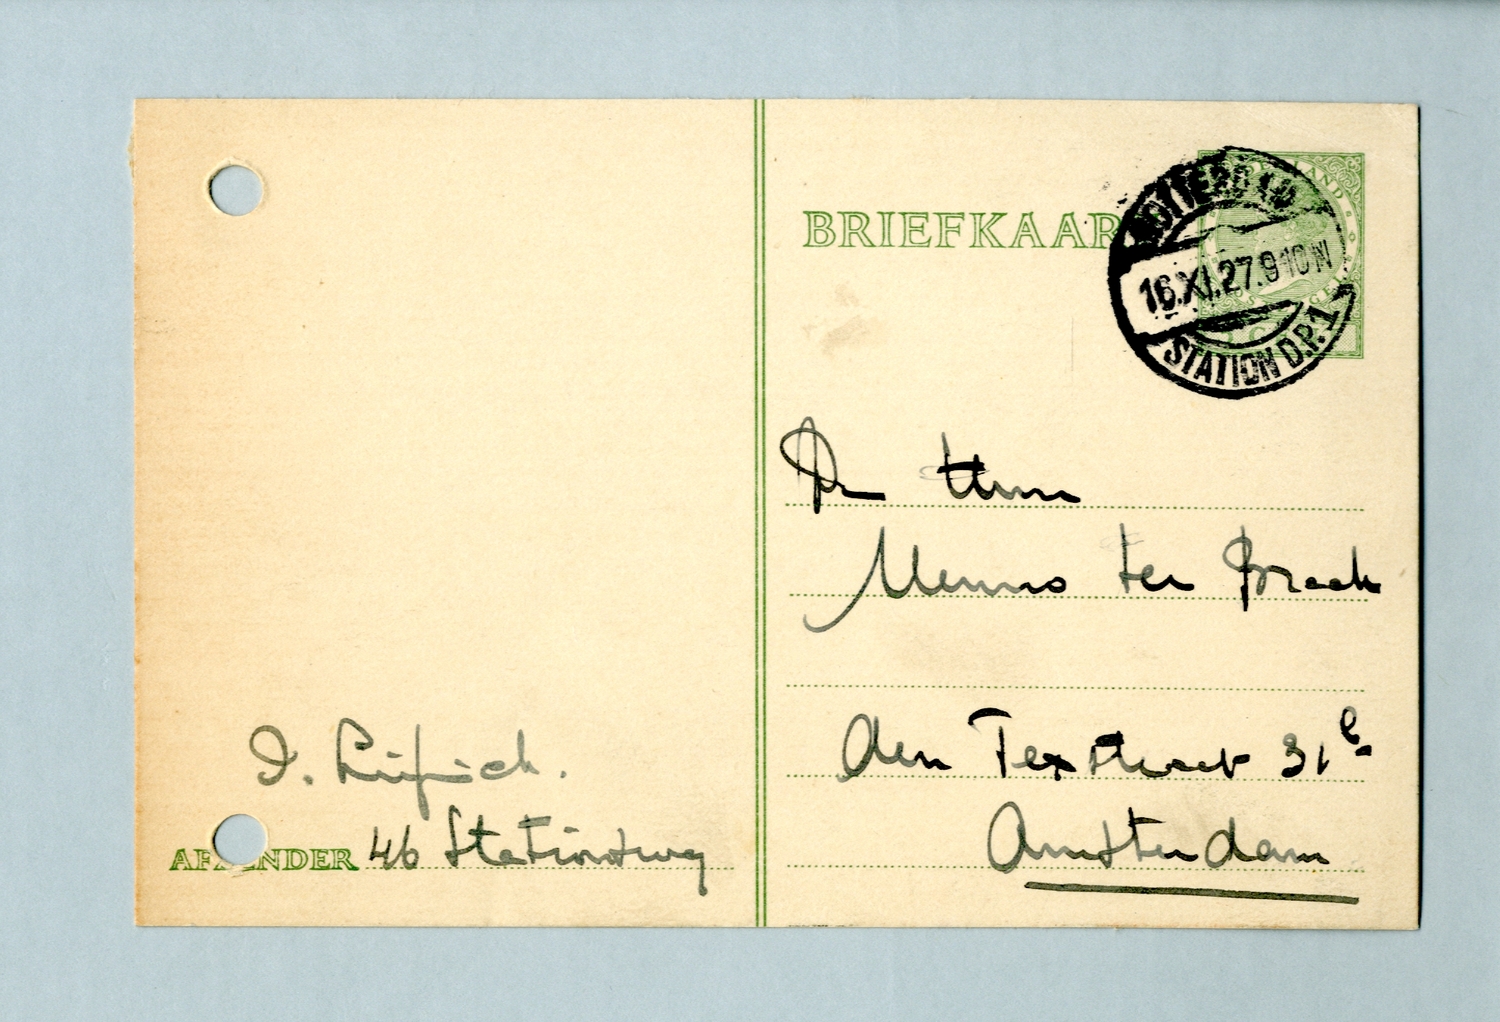 BRIEFKAAR
ROTTERDAM
16.XI.27.9-10N
STATION D.P.1
Den Heer
Menno ter Braak
den Texstraat 31 b
Amsterdam
J.
AFZENDER 46 Stationsweg